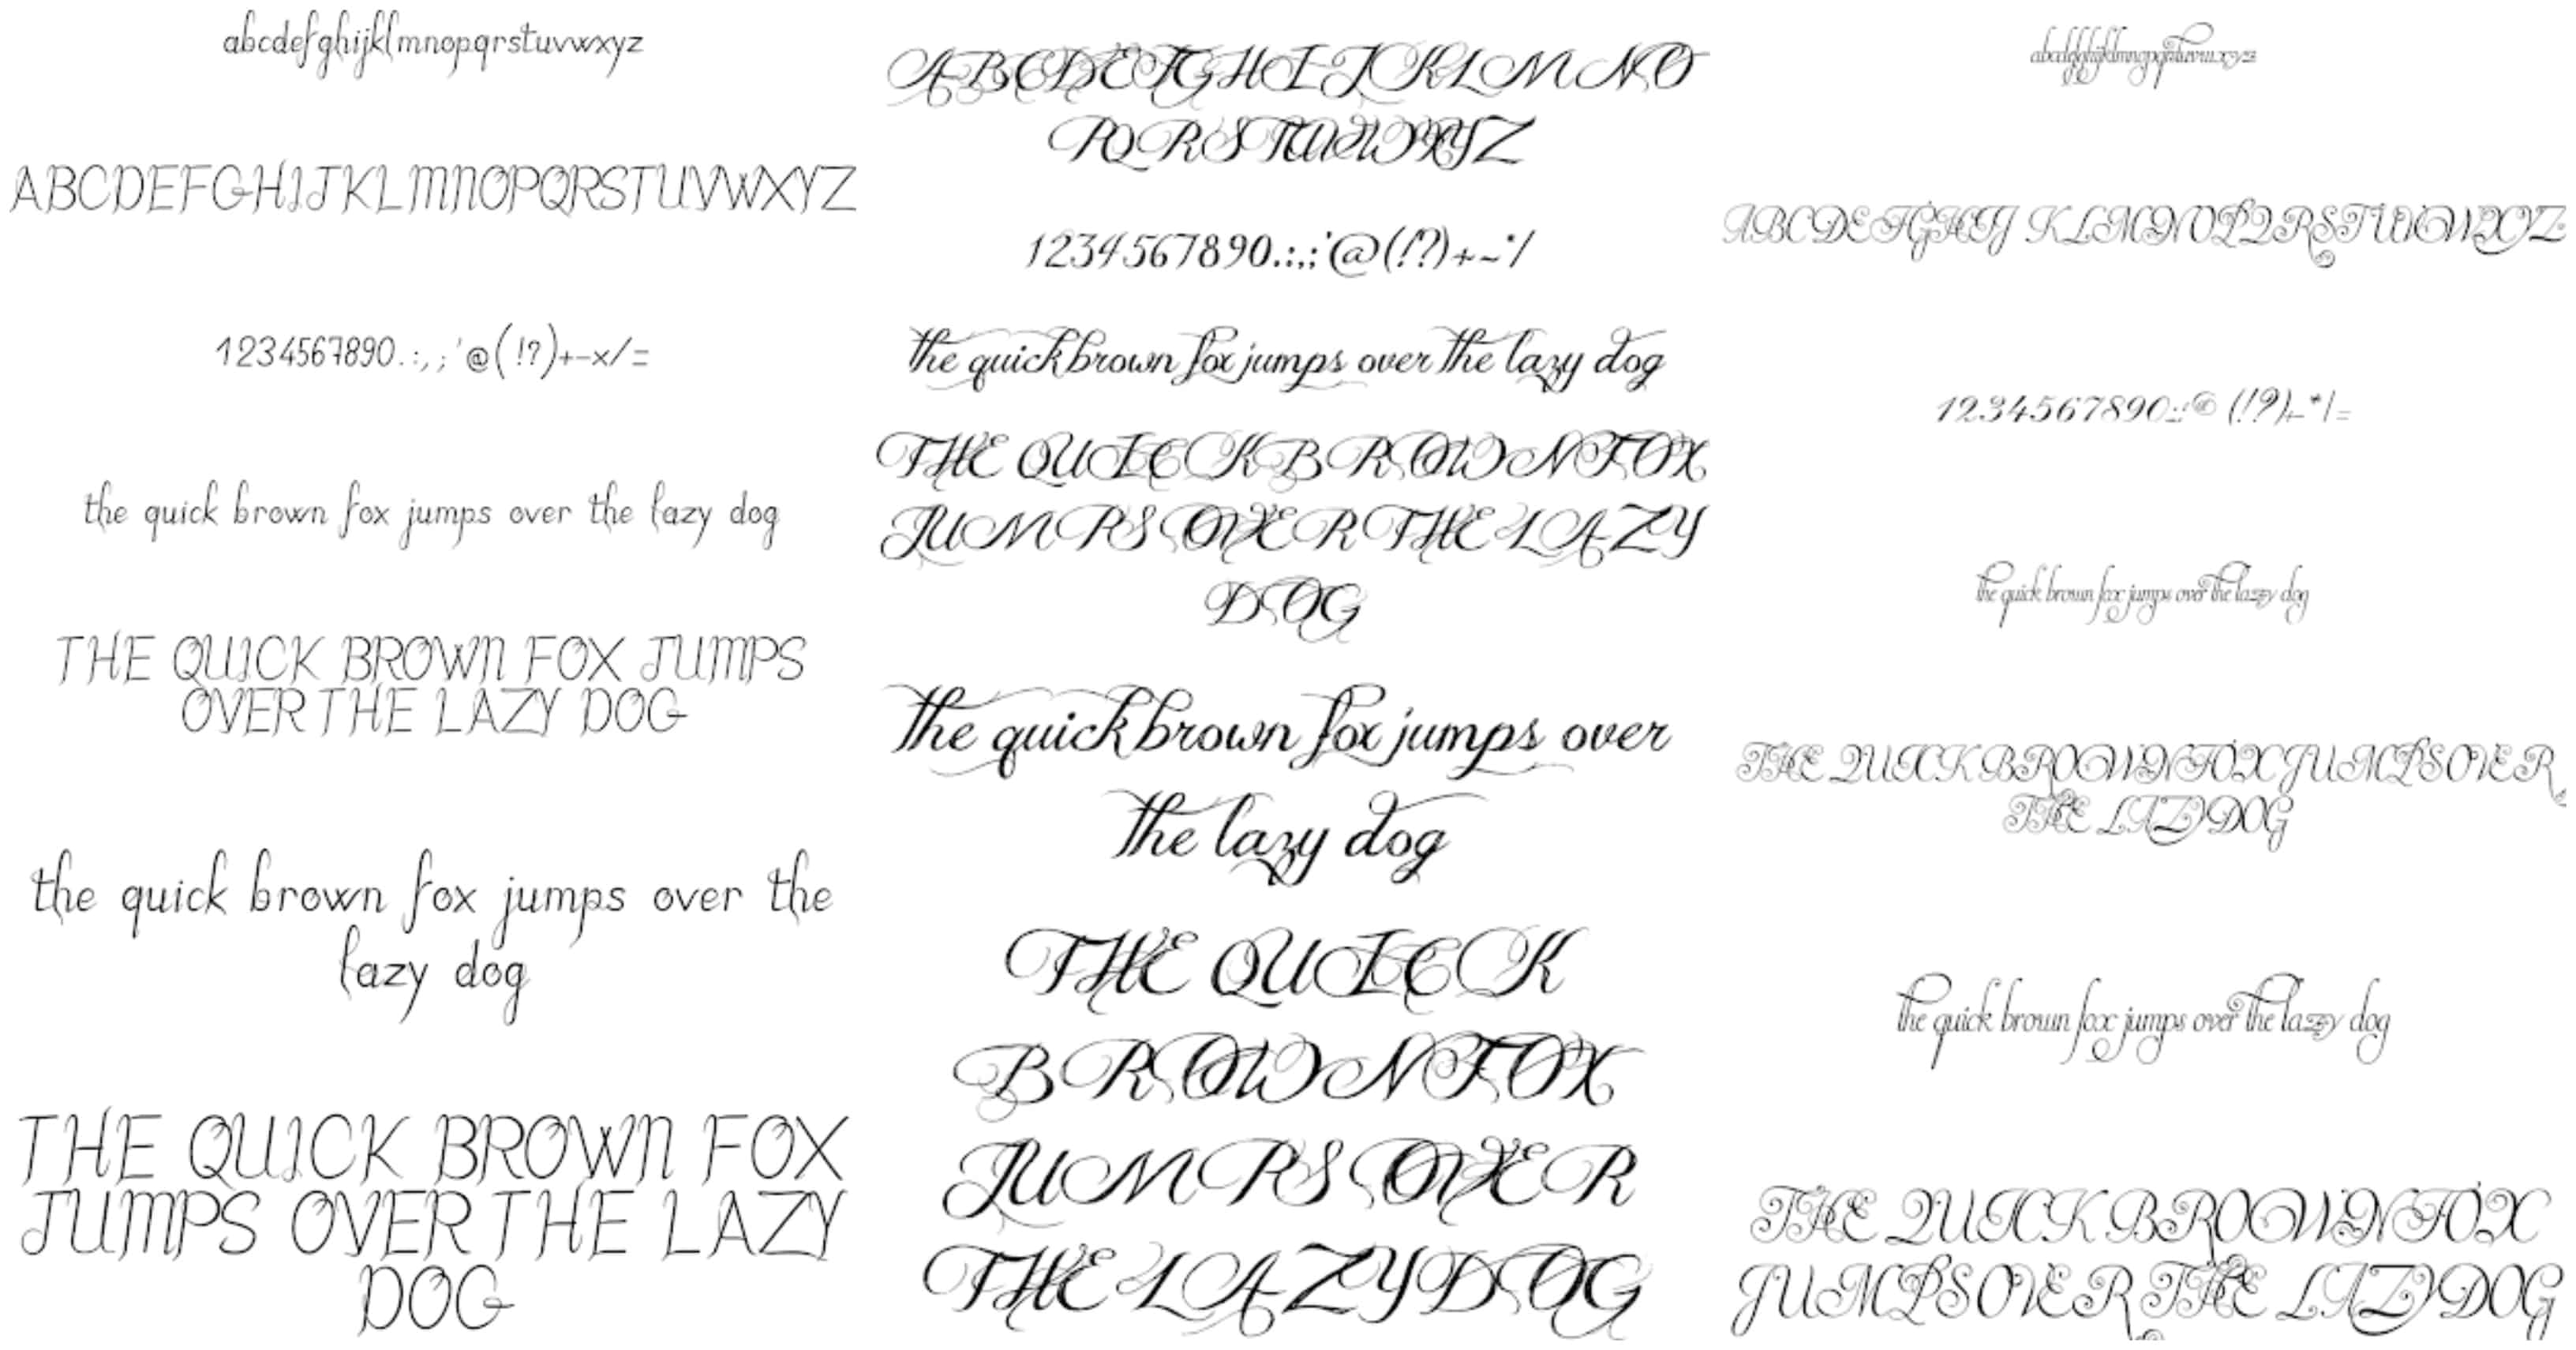 abcdefghijklmnopqrstuvwxyz
ABCDEFGHIJKLMNOPQRSTUVWXYZ
1234567890.:,;'@(!?)+-x/=
the quick brown fox jumps over the lazy dog
THE QUICK BROWN FOX JUMPS
OVER THE LAZY DOG
the quick brown fox jumps over the
lazy dog
THE QUICK BROWN FOX
JUMPS OVER THE LAZY
DOG
ABCDEFGHIJKLMNO
PQRSTUVWXYZ
1234567890.:,;'@(!?)+-*/
the quick brown fox jumps over the lazy dog
THE QUICK BROWN FOX
JUMPS OVER THE LAZY
DOG
the quick brown fox jumps over
the lazy dog
THE QUICK
BROWN FOX
JUMPS OVER
THE LAZY DOG
abcdefghijklmnopqrstuvwxyz
ABCDEFGHIJKLMNOPQRSTUVWXYZ
1234567890.:,;'@(!?)+-*/=
the quick brown fox jumps over the lazy dog
THE QUICK BROWN FOX JUMPS OVER
THE LAZY DOG
the quick brown fox jumps over the lazy dog
THE QUICK BROWN FOX
JUMPS OVER THE LAZY DOG